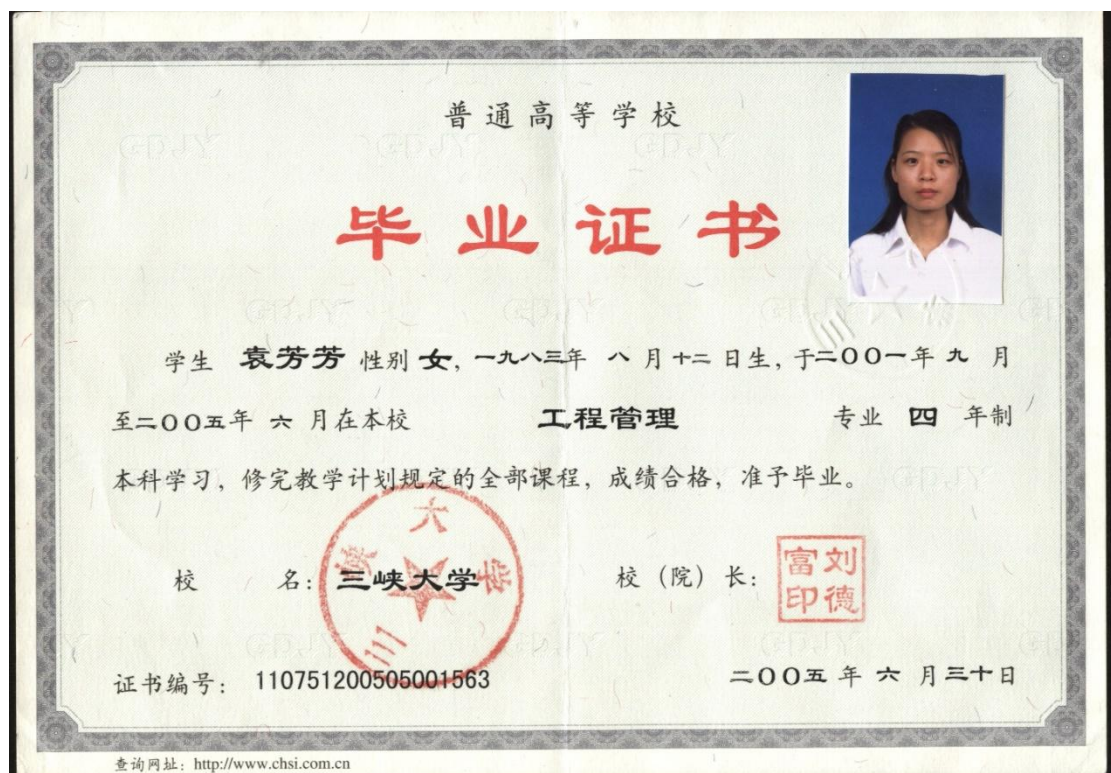 普通高等学校
毕业证书
学生 袁芳芳 性别 女, 一九八三年 八 月十二 日生, 于二00一年 九 月
至二00五年 六 月在本校 工程管理 专业 四 年制
本科学习, 修完教学计划规定的全部课程, 成绩合格, 准予毕业。
三峡大学
校 名: 三峡大学 校 (院) 长:
刘德富印
证书编号: 110751200505001563 二00五 年 六 月三十日
查询网址: http://www.chsi.com.cn
GDJY